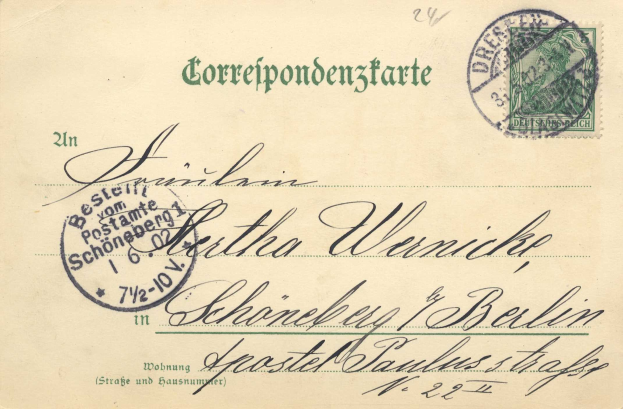 24
DRESDEN
DEUTSCHES REICH
Correspondenzkarte
An
Fräulein
Bestellt
vom
Postamte
Schöneberg 1
1 6. 02
* 7½-10 V. *
Bertha Wernicke,
in Schöneberg b/Berlin
Wohnung
(Straße und Hausnummer)
Apostel Paulusstraße
N. 22 II